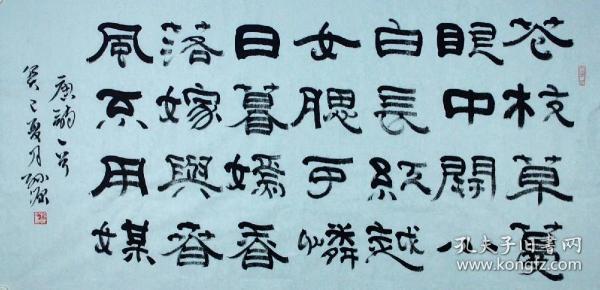 花枝草蔓
眼中開小
白長紅越
女腮可憐
日暮嫣香
落嫁與春
風不用媒
唐詩一首
癸巳夏月
孔夫子旧书网
www.kongfz.com